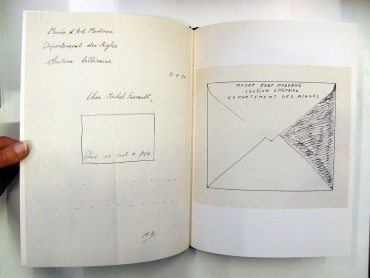 Musée d'Art Moderne
Département des Aigles
Section littéraire
Cher Michel Foucault,
This is not a Pipe
M.B.
MUSEE D'ART MODERNE
section littéraire
DEPARTEMENT DES AIGLES